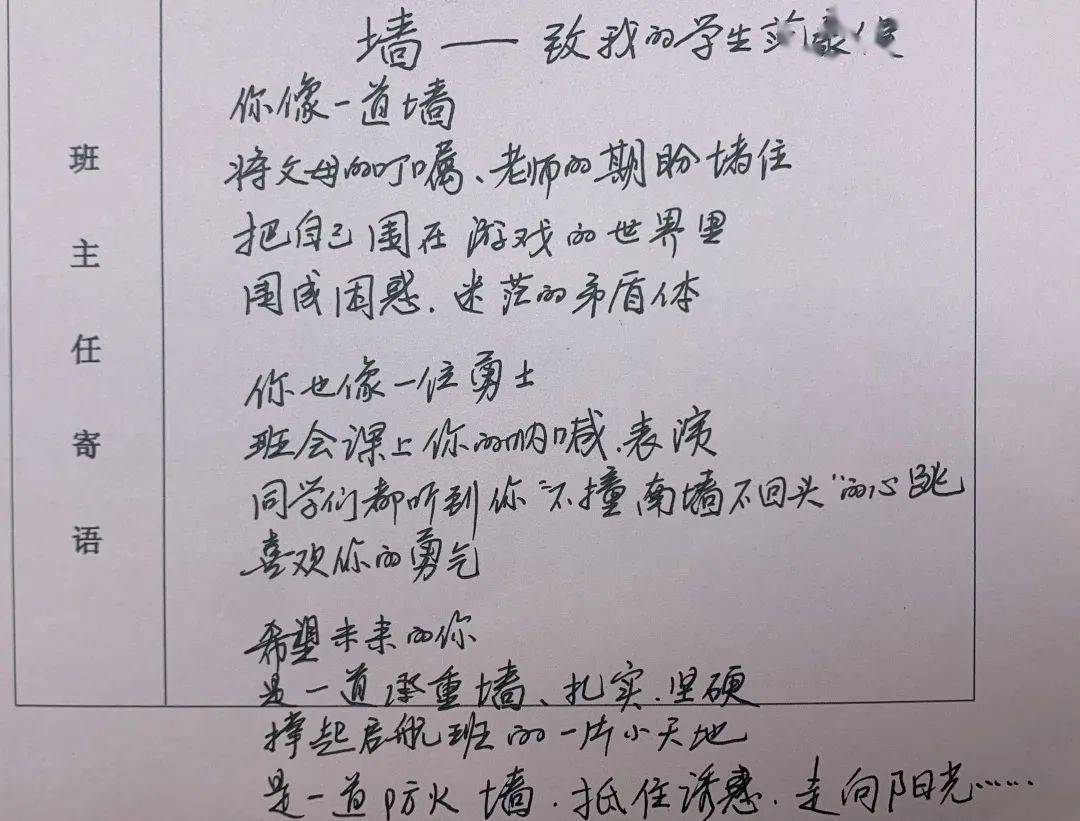 墙——致我的学生
你像一道墙
将父母的叮嘱、老师的期盼堵住
把自己围在游戏的世界里
围成困惑、迷茫的矛盾体
你也像一位勇士
班会课上你的呐喊、表演
同学们都听到你“不撞南墙不回头”的心跳
喜欢你的勇气
希望未来的你
是一道承重墙、扎实、坚硬
撑起启航班的一片小天地
是一道防火墙、抵住诱惑、走向阳光……
班主任寄语